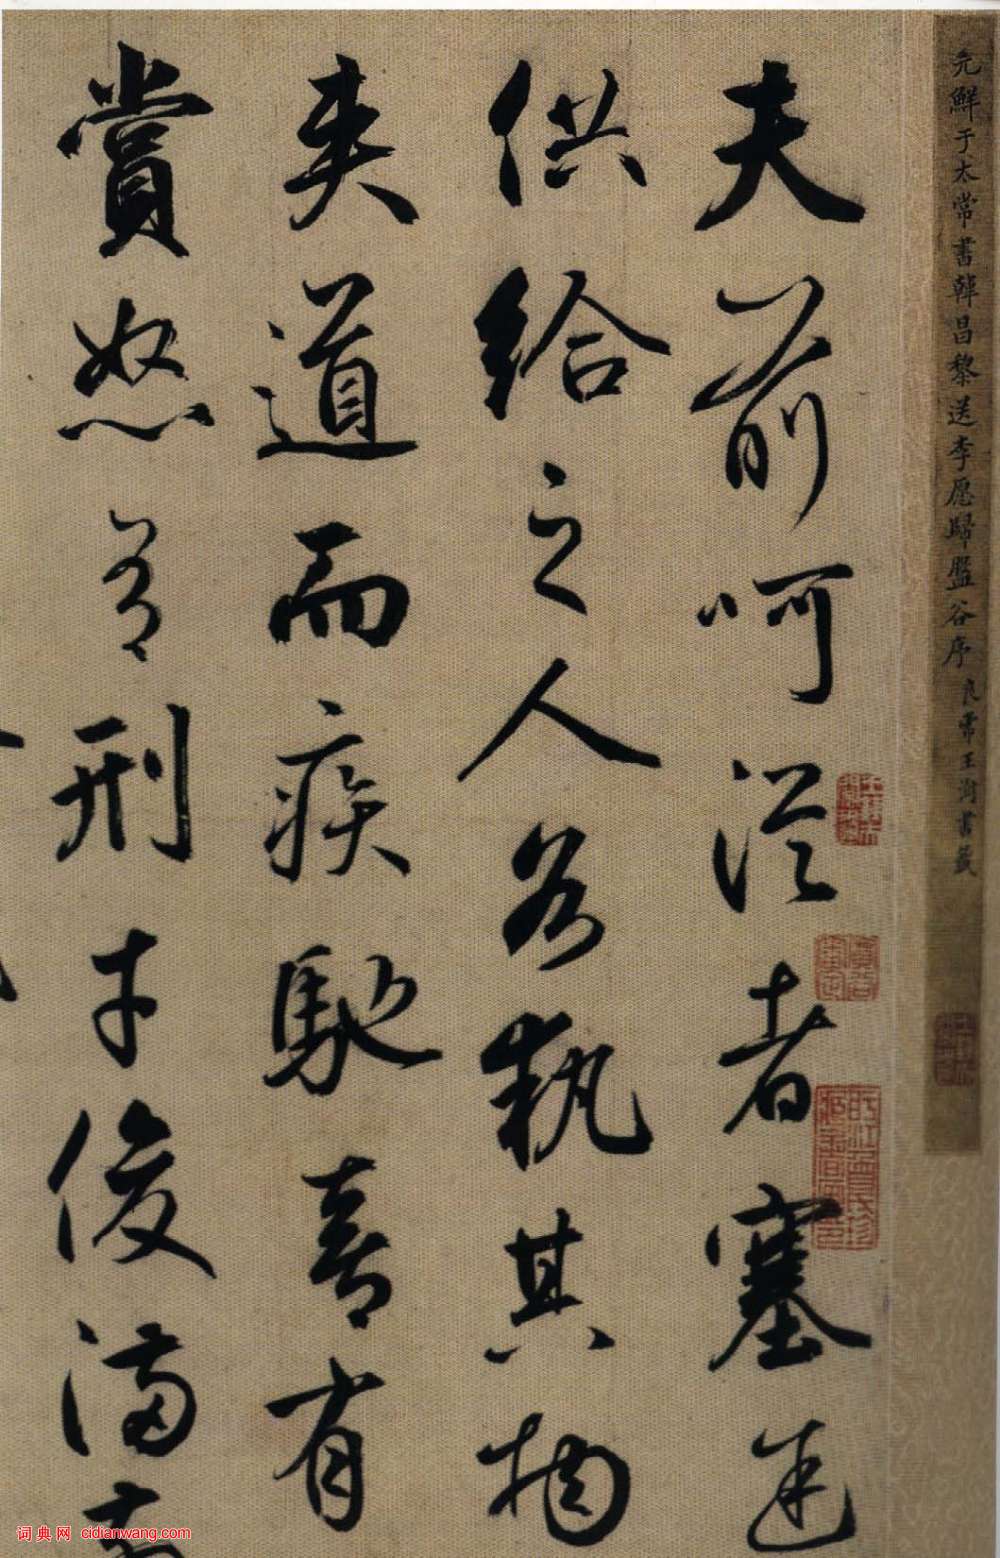 元鮮于太常書韓昌黎送李愿歸盤谷序 良常王澍書籤
夫前呵從者塞途
供給之人各執其物
夾道而疾馳喜有
賞怒有刑才俊滿
词典网 cidianwang.com